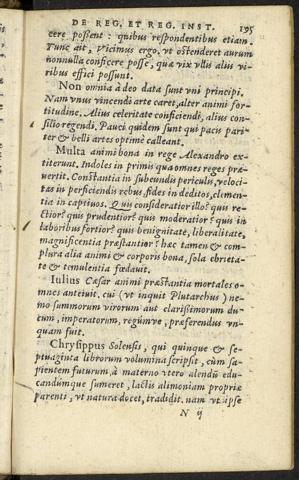 DE REG. ET REG. INST. 195
cere possent: quibus respondentibus etiam.
Tunc ait, Vicimus ergo. vt ostenderet aurum
nonnulla conficere posse, quæ vix vllis alijs vi-
ribus effici possunt.
Non omnia à deo data sunt vni principi.
Nam vnus vincendi arte caret, alter animi for-
titudine. Alius celeritate conficiendi, alius con-
silio regendi. Pauci quidem sunt qui pacis pari-
ter & belli artes optimè calleant.
Multa animi bona in rege Alexandro ex-
titerunt. Indoles in primis qua omnes reges præ-
uertit. Constātia in subeundis periculis, veloci-
tas in perficiendis rebus, fides in deditos, clemen-
tia in captiuos. Quis consideratior illo? quis re-
ctior? quis prudentior? quis moderatior? quis in
laboribus fortior? quis benignitate, liberalitate,
magnificentia præstantior? hæc tamen & com-
plura alia animi & corporis bona, sola ebrieta-
te & temulentia fœdauit.
Iulius Cæsar animi præstantia mortales o-
mnes anteiuit. cui (vt inquit Plutarchus) ne-
mo summorum virorum aut clarissimorum du-
cum, imperatorum, regúmve, præferendus vn-
quam fuit.
Chrysippus Solensis, qui quinque & se-
ptuaginta librorum volumina scripsit, cùm sa-
pientem futurum, à materno vtero alendū edu-
candúmque sumeret, lactis alimoniam propriæ
parenti, vt natura docet, tradidit. nam vt ipse
N ij